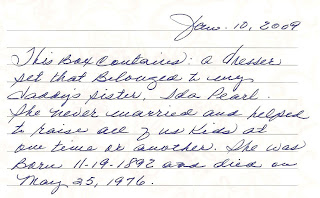 Jan. 10, 2009
This Box Contains: a dresser
set that Belonged to my
daddy's sister, Ida Pearl.
She never married and helped
to raise all of us Kids at
one time or another. She was
Born 11-19-1892 and died on
May 25, 1976.